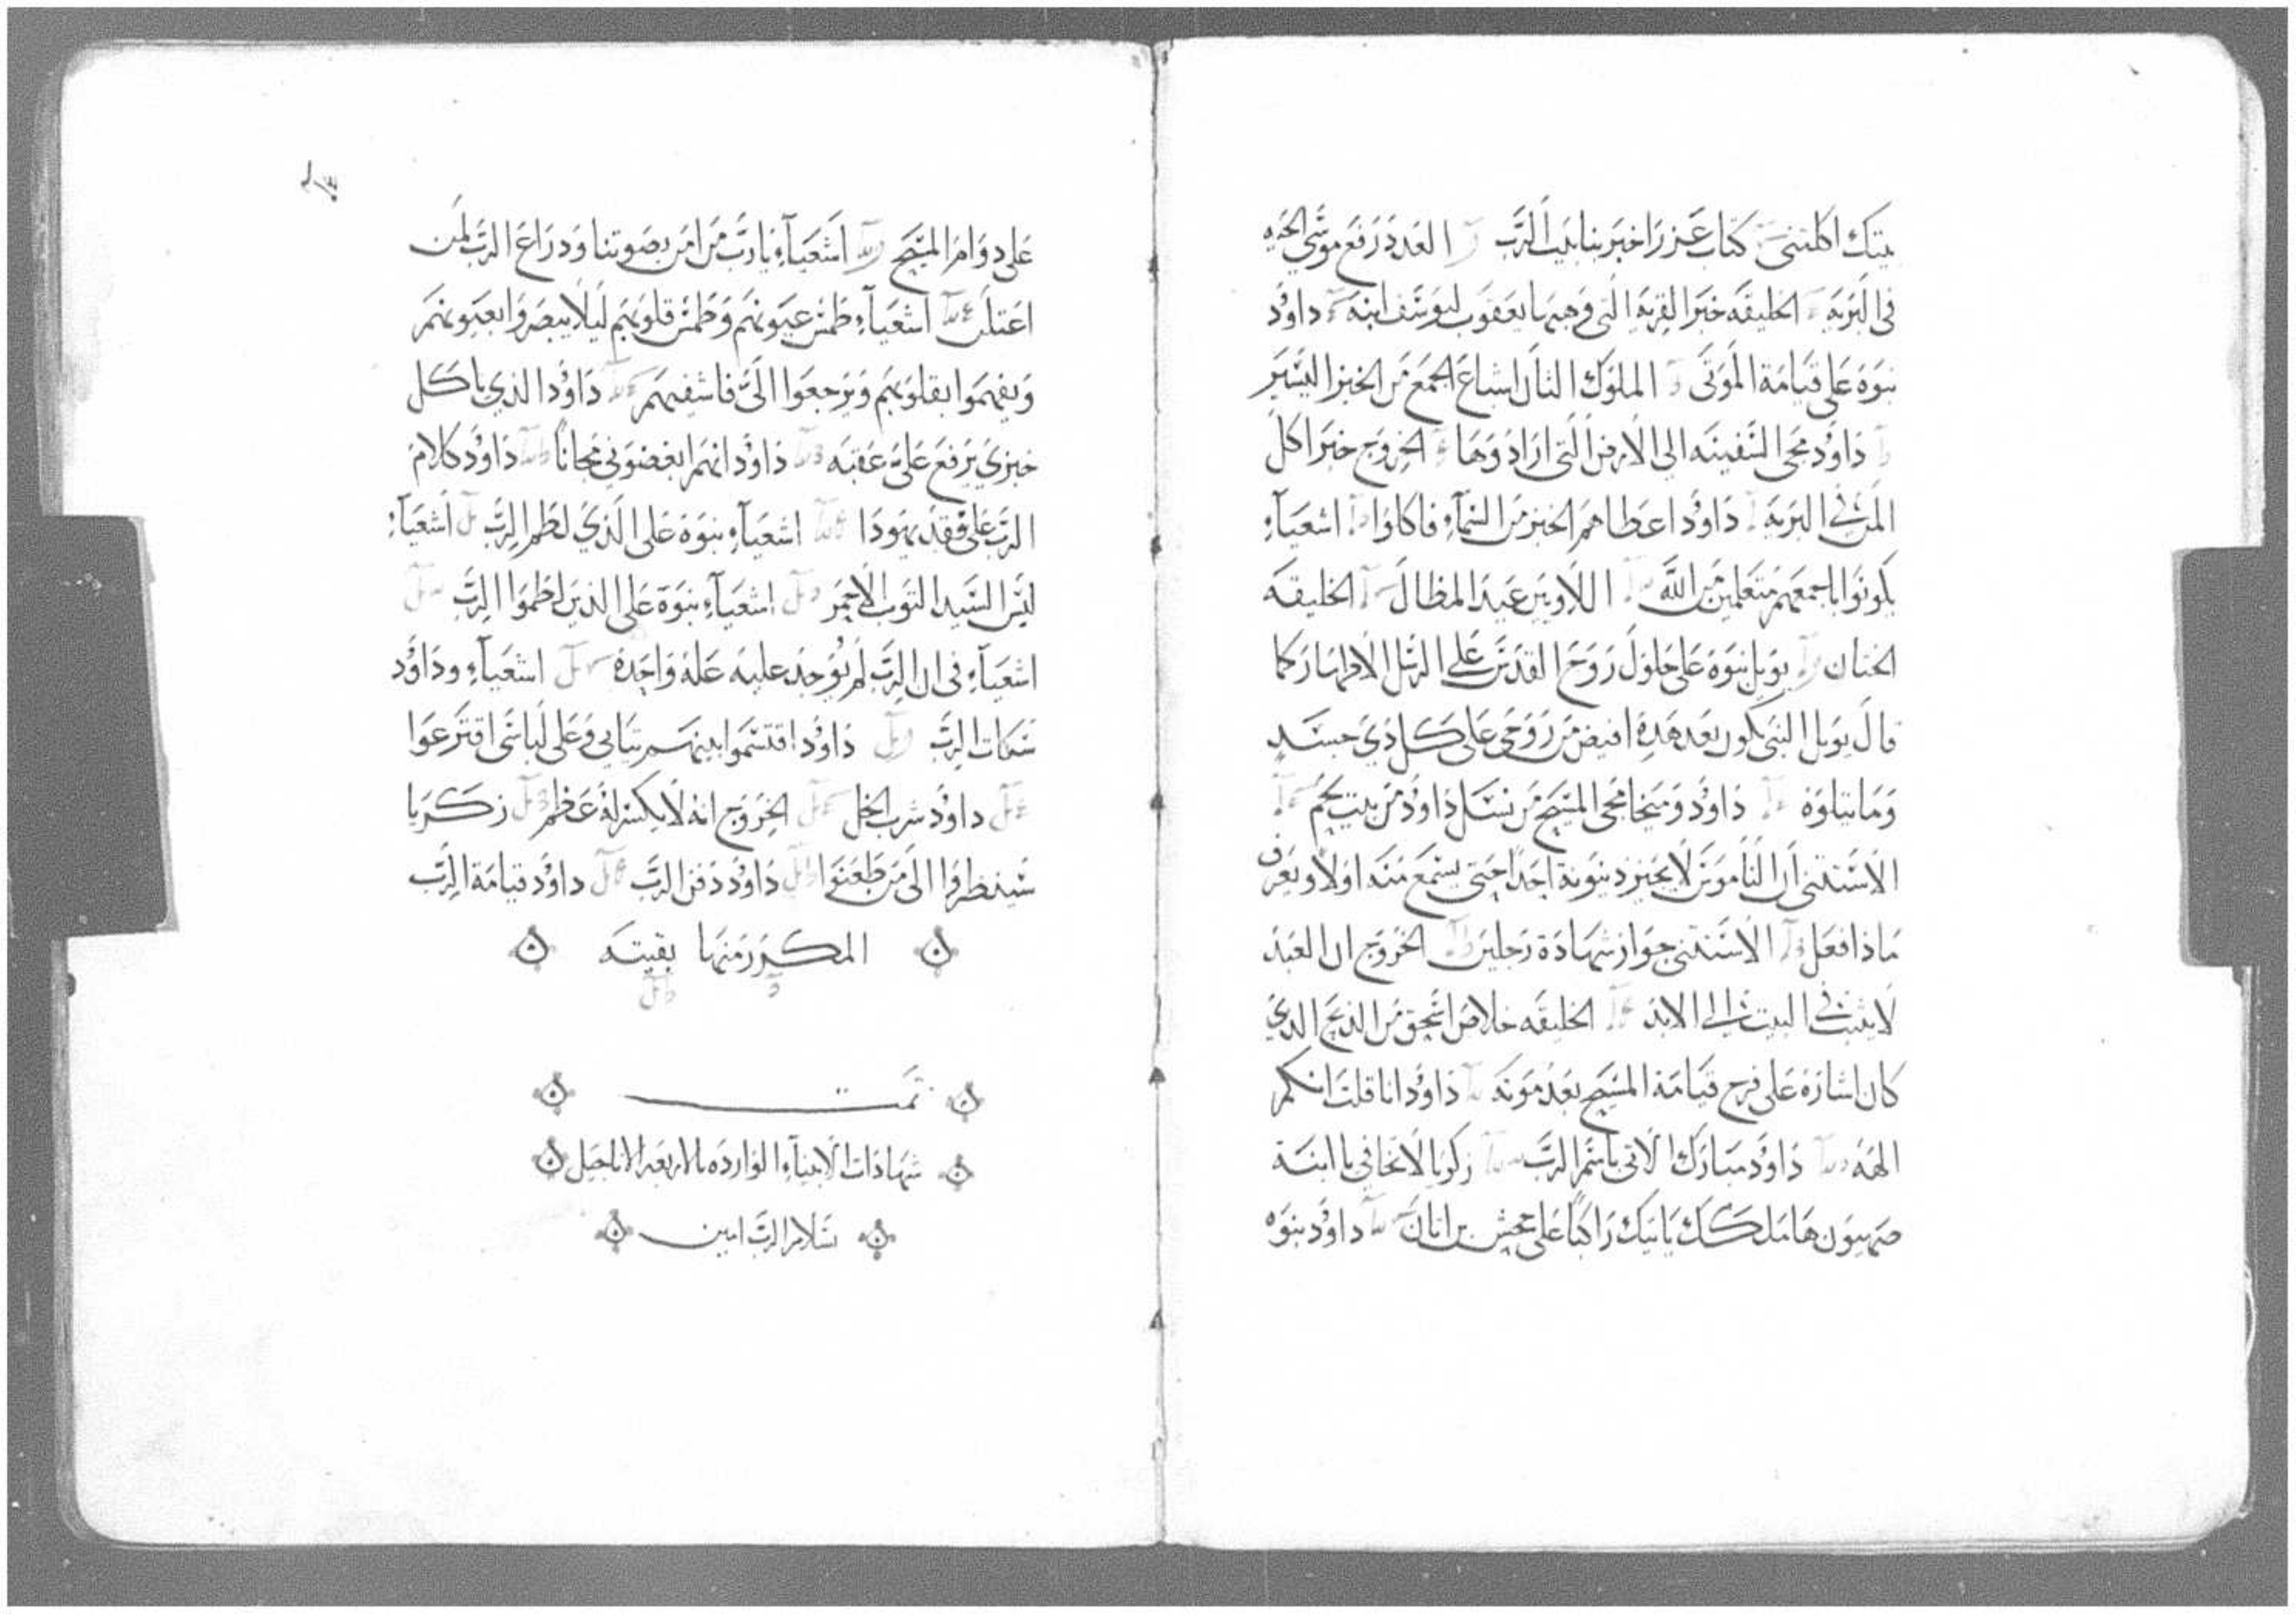 بيتك اكلتني كتاب عزرا خبر بنا بيت الرب العدد رفع موسى الحيه
في البريه الخليقه خبر القريه التي وهبها يعقوب ليوسف ابنه داوُد
نبوة على قيامة الموتى الملوك الثالث اشباع الجمع من الخبز اليسير
داوُد مجى السفينه الى الارض التي ارادوها الخروج خبر اكل
المن في البريه داوُد اعطاهم الخبز من السمآء فاكلوا اشعيآء
يكونوا باجمعهم متعلمين من الله اللاويين عيد المظال الخليقه
الختان يوئيل نبوة على حلول روح القدس على الرسل الاطهار كما
قال يوئيل النبي يكون بعد هذه افيض من روحي على كل ذي جسد
وما يتلوة داوُد وميخا مجى المسيح من نسل داوُد من بيت لحم
الاستثني ان الناموس لا يجيز دينونة احداً حتى يسمع منه اولاً ويعرف
ماذا فعل الاستثني جواز شهادة رجلين الخروج ان العبد
لا يثبت في البيت الى الابد الخليقه خلاص اسحق من الذبح الذي
كان اشارة على فرح قيامة المسيح بعد موته داوُد انا قلت انكم
الهه داوُد مبارك الاتى باسم الرب زكريا لا تخافي يا ابنة
صهيون ها ملكك ياتيك راكباً على جحش بن اتان داوُد نبوه
على دوام المسيح اشعيآء يارب من امن بصوتنا ودراع الرب لمن
اعتلن اشعيآء طمس عيونهم وطمس قلوبهم ليلا يبصروا بعيونهم
ويفهموا بقلوبهم ويرجعوا الىّ فاشفيهم داوُد الذي ياكل
خبزي يرفع علىّ عقبه داوُد انهم ابغضوني مجاناً داوُد كلام
الرب على فقد يهودا اشعيآء نبوة على الذي لطم الرب اشعيآء
لبس السيد الثوب الاحمر اشعيآء نبوة على الذين لطموا الرب
اشعيآء في ان الرب لم يوجد عليه علة واحدة اشعيآء وداوُد
الرب داوُد اقتسموا بينهم ثيابي وعلى لباسي اقترعوا
داوُد شرب الخل الخروج انه لا يكسر له عظم زكريا
سينظروا الى من طعنوا داوُد دفن الرب داوُد قيامة الرب
المكرر منها بقيته
تمت
شهادات الانبيآء الوارده بالاربعه الاناجيل
بسلام الرب امين